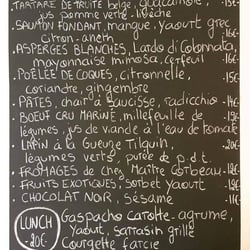 TARTARE DE TRUITE belge, guacamole, .15€
jus pomme verte - livèche
• SAUMON FONDANT, mangue, yaourt grec
citron-aneth .16€
• ASPERGES BLANCHES, Lardo di Colonnata,
mayonnaise mimosa, cerfeuil .16€
• POÊLÉE DE COQUES, citronnelle,
coriandre, gingembre .15€
• PÂTES, chair à saucisse, radicchio .14€
• BOEUF CRU MARINÉ, millefeuille de
légumes, jus de viande à l'eau de tomate
• LAPIN à la Gueuze Tilquin,
légumes verts, purée de p.d.t.
• FROMAGES de chez Maître Corbeau .12€
• FRUITS EXOTIQUES, sorbet yaourt
• CHOCOLAT NOIR, SÉSAME .11€
LUNCH 20€
Gaspacho carotte-agrume,
Yaourt, sarrasin grillé
Courgette farcie